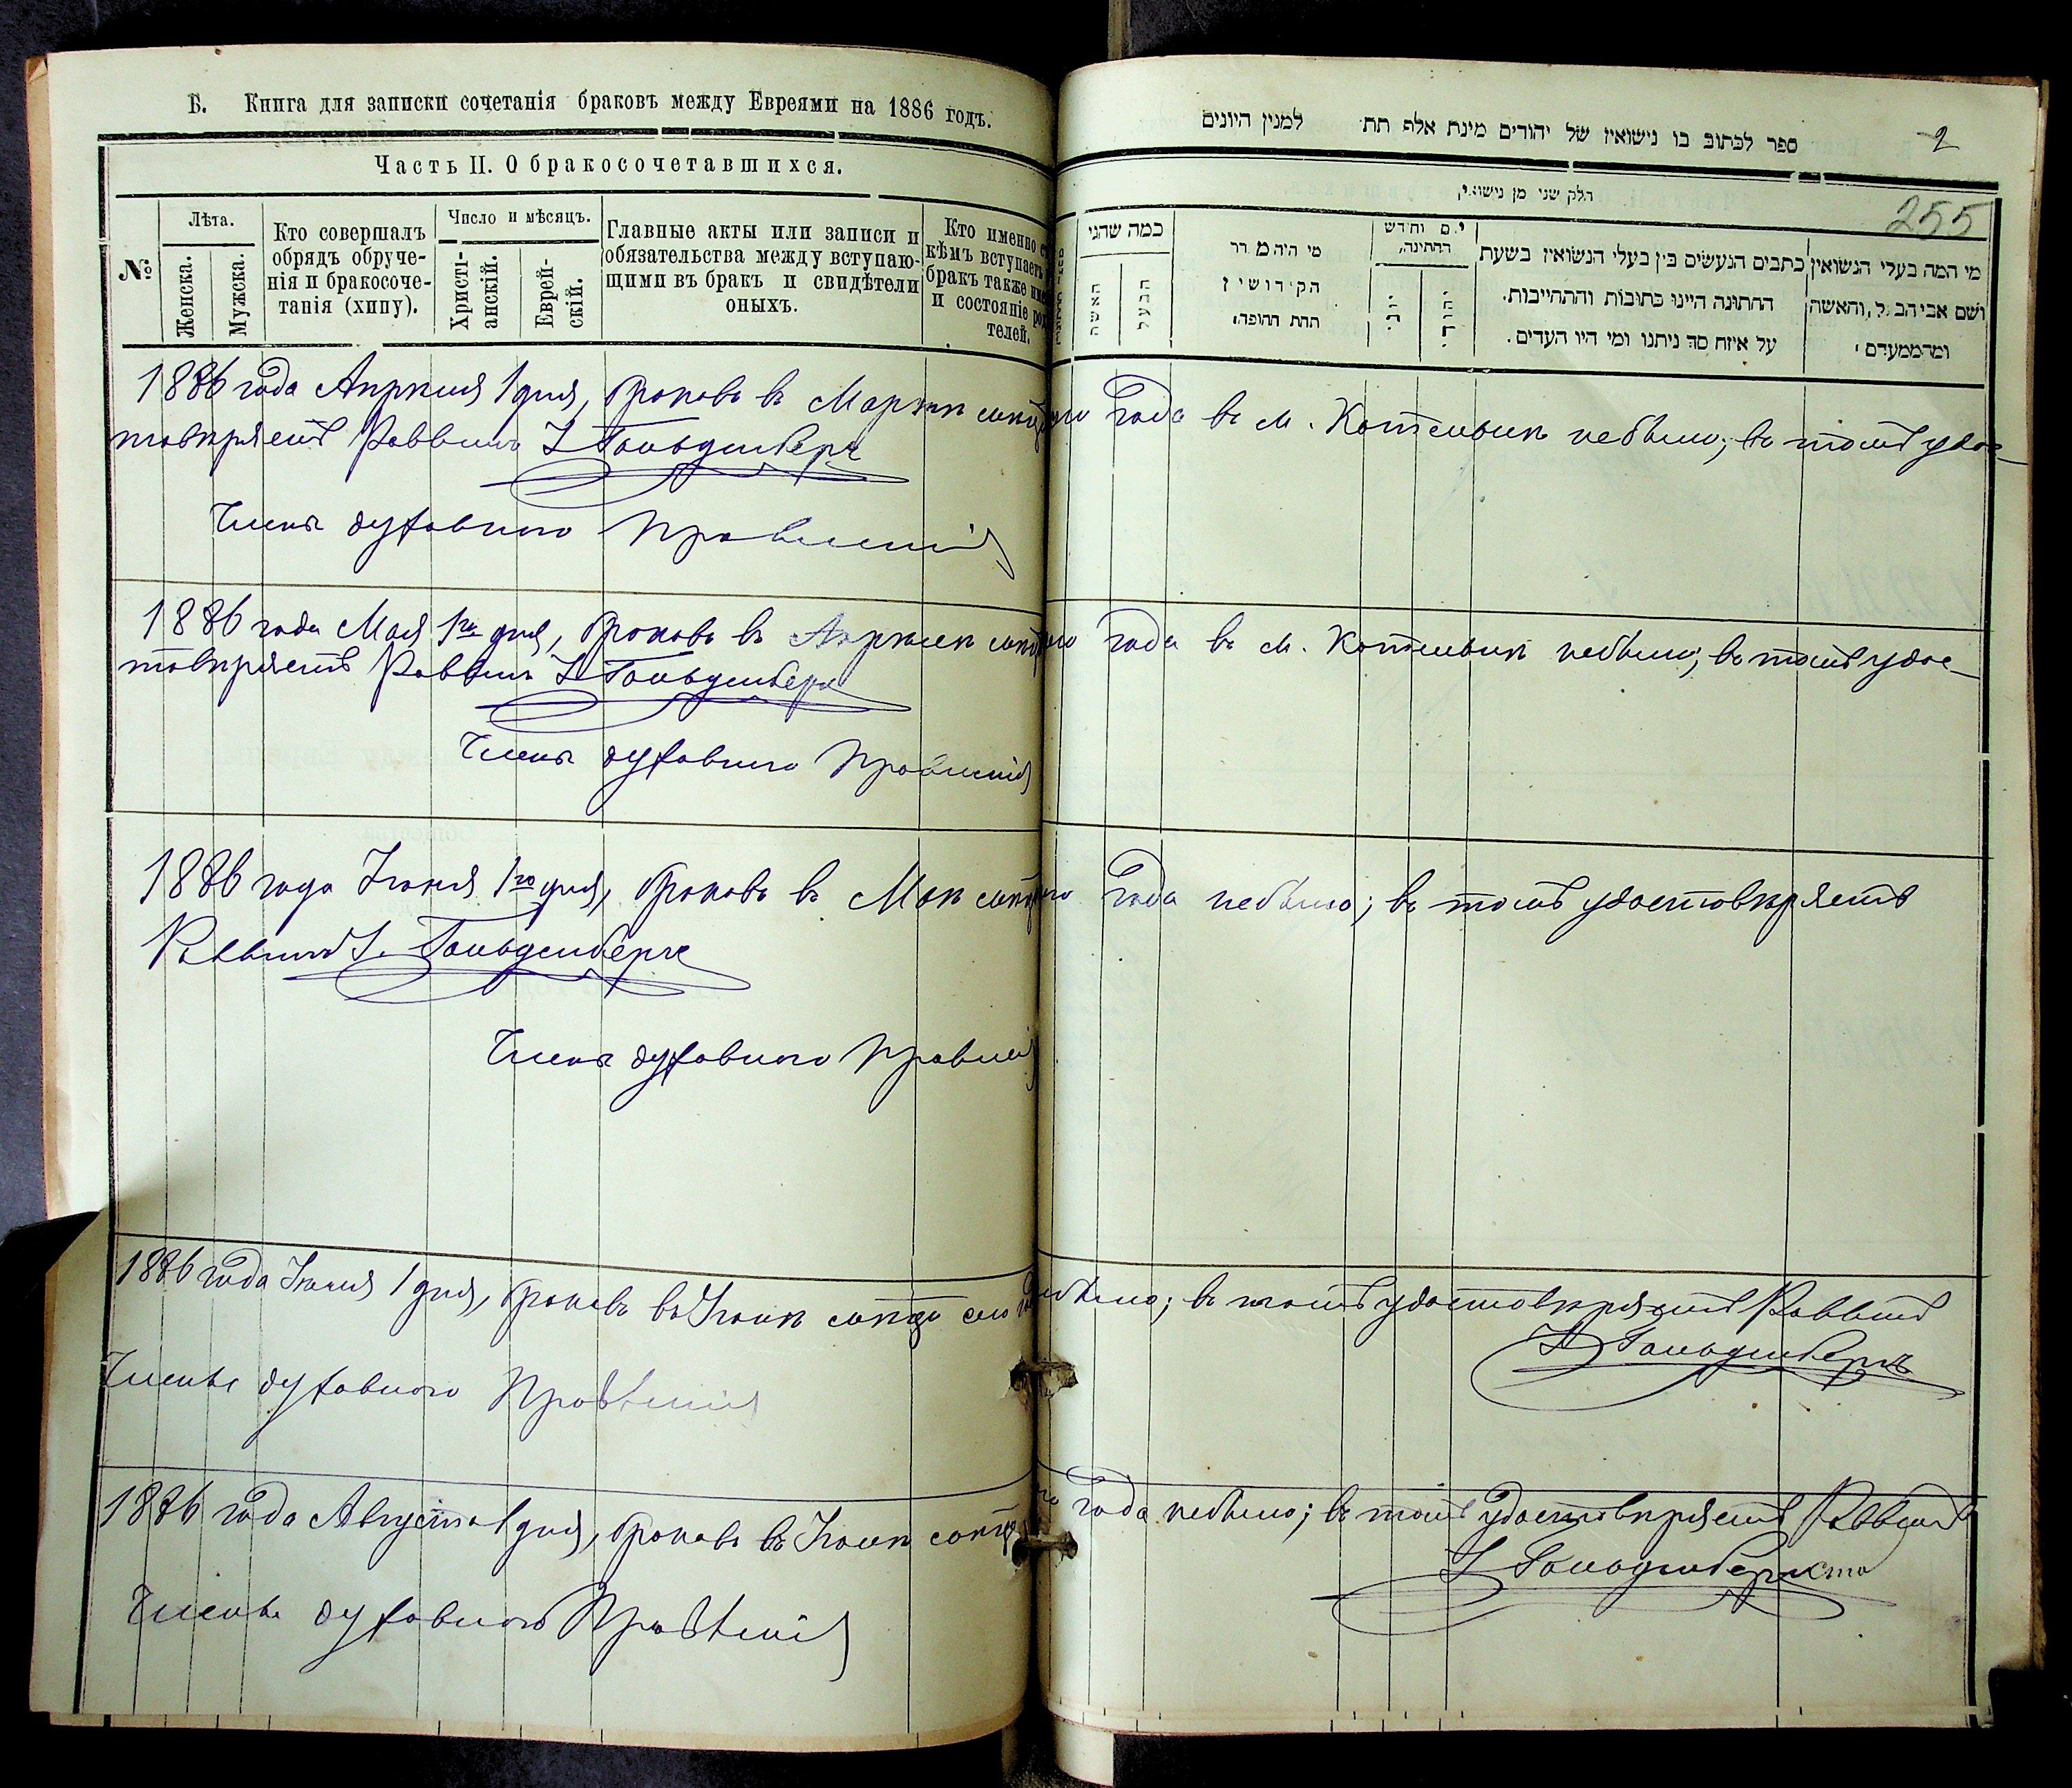 Б. Книга для записки сочетанія браковъ между Евреями на 1886 годъ.
Часть II. О бракосочетавшихся.
№
Лѣта.
Женска.
Мужска.
Кто совершалъ
обрядъ обруче-
нія и бракосоче-
танія (хипу).
Число и мѣсяцъ.
Христі-
анскій.
Еврей-
скій.
Главные акты или записи и
обязательства между вступаю-
щими въ бракъ и свидѣтели
оныхъ.
Кто именно
кѣмъ вступаетъ
бракъ также
и состояніе ро
телей.
2
ספר לכתוב בו נישואין של יהודים מינת אלפ תת למנין היונים
חלק שני מן נישואי,
255
כמה שהגי
האשה
הבעל
מי היה מ דר
הקידושין
תחת החופה.
י.ם וחידש
החתינה,
יוני
יהודי
כתבים הנעשים בין בעלי הנשואין בשעת
החתונה היינו כתובות והתחייבות.
על איזה סך ניתנו ומי היו העדים.
מי המה בעלי הנשואין
ושם אבי הבעל, והאשה
ומהמעמדם.
1886 года Апрѣля 1 дня, браковъ въ Мартѣ сего года въ м. Котельвѣ небыло; въ томъ удос-
товѣряетъ Раввинъ Гольденбергъ
Члены духовного Правленія
1886 года Мая 1го дня, браковъ въ Апрѣлѣ года въ м. Котельвѣ небыло; въ томъ удос-
товѣряетъ Раввинъ Гольденбергъ
Члены духовного Правленія
1886 года Іюня 1го дня, браковъ въ Маѣ года небыло; въ томъ удостовѣряетъ
Раввинъ Гольденбергъ
Члены духовного Правленія
1886 года Іюля 1 дня, браковъ въ Іюнѣ небыло; въ томъ удостовѣряетъ Раввинъ
Гольденбергъ
Члены духовного Правленія
1886 года Августа 1 дня, браковъ въ Іюлѣ года небыло; въ томъ удостовѣряетъ Раввинъ
Гольденбергъ
Члены духовного Правленія